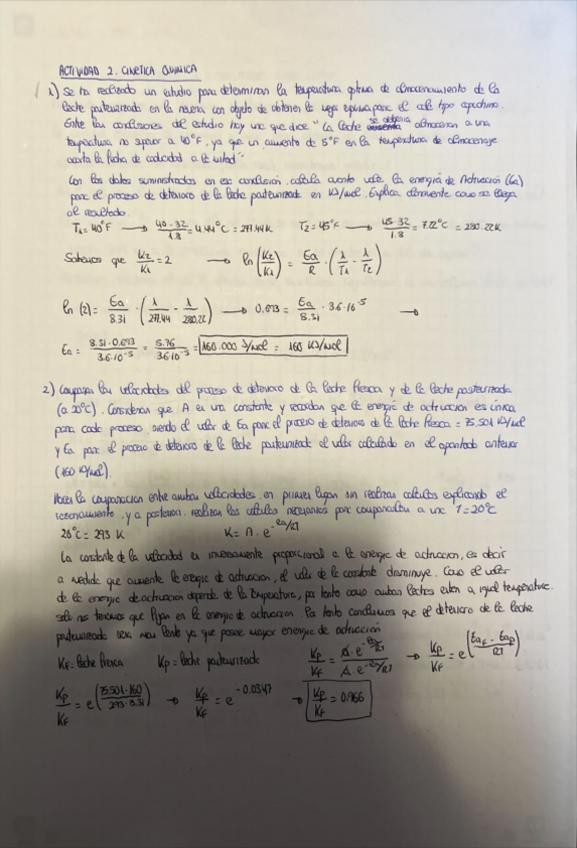 ACTIVIDAD 2. CINETICA QUIMICA
1) Se ha realizado un estudio para determinar la temperatura optima de almacenamiento de la
leche pasteurizada en la nevera con objeto de obtener la mejor espuma para el café tipo capuchino.
Entre las conclusiones del estudio hay una que dice "La leche se debería almacenar a una
temperatura no superior a 40°F, ya que un aumento de 5°F en la temperatura de almacenaje
acorta la fecha de caducidad a la mitad"
Con los datos suministrados en esa conclusión, calcula cuanto vale la energía de Activación (Ea)
para el proceso de deterioro de la leche pasteurizada en KJ/mol. Explica claramente como se llega
al resultado.
T1 = 40°F → 40-32/1.8 = 4.44°C = 277.44K T2 = 45°F → 45-32/1.8 = 7.22°C = 280.22K
Sabemos que K2/K1 = 2 → ln(K2/K1) = Ea/R · (1/T1 - 1/T2)
ln(2) = Ea/8.31 · (1/277.44 - 1/280.22) → 0.693 = Ea/8.31 · 3.6·10^-5 →
Ea = 8.31·0.693/3.6·10^-5 = 5.76/3.6·10^-5 = 160.000 J/mol = 160 KJ/mol
2) Compara las velocidades del proceso de deterioro de la leche fresca y de la leche pasteurizada
(a 20°C). Considerar que A es una constante y recordar que la energia de activacion es única
para cada proceso, siendo el valor de Ea para el proceso de deterioro de la leche fresca = 75.501 KJ/mol
y Ea para el proceso de deterioro de la leche pasteurizada el valor calculado en el apartado anterior
(160 KJ/mol).
Haces la comparacion entre ambas velocidades, en primer lugar sin realizar calculos explicando el
razonamiento, y a posteriori realizar los calculos necesarios para compararlas a una T=20°C
20°C = 293 K K = A · e^-Ea/RT
La constante de la velocidad es inversamente proporcional a la energia de activacion, es decir
a medida que aumente la energia de activacion, el valor de la constante disminuye. Como el valor
de la energia de activacion depende de la temperatura, por tanto como ambas leches estan a igual temperatura
solo nos tenemos que fijar en la energia de activacion. Por tanto concluimos que el deterioro de la leche
pasteurizada sera mas lento ya que posee mayor energia de activación
KF = leche fresca Kp = leche pasteurizada Kp/KF = A·e^-Ea/RT / A·e^-Ea/RT → Kp/KF = e^(EaF - Eap/RT)
Kp/KF = e^(75.501-160/293·8.31) → Kp/KF = e^-0.0347 → Kp/KF = 0.966